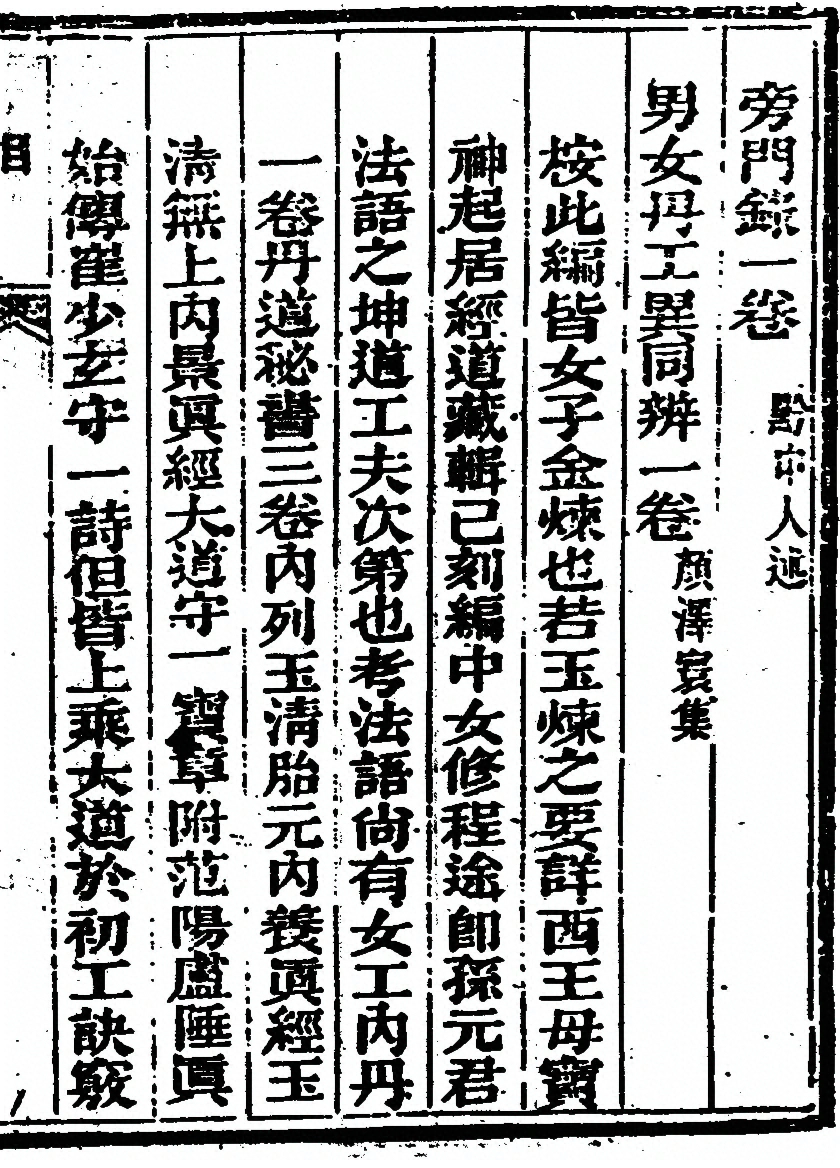 旁門錄一卷 黔中人述
男女丹工異同辨一卷 顏澤寰集
按此編皆女子金煉也若玉煉之要詳西王母寶
神起居經道藏輯已刻編中女修程途卽孫元君
法語之坤道工夫次第也考法語尙有女工內丹
一卷丹道秘書三卷內列玉淸胎元內養眞經玉
淸無上內景眞經大道守一寶章附范陽盧陲眞
始傳崔少玄守一詩但皆上乘大道於初工訣竅
目